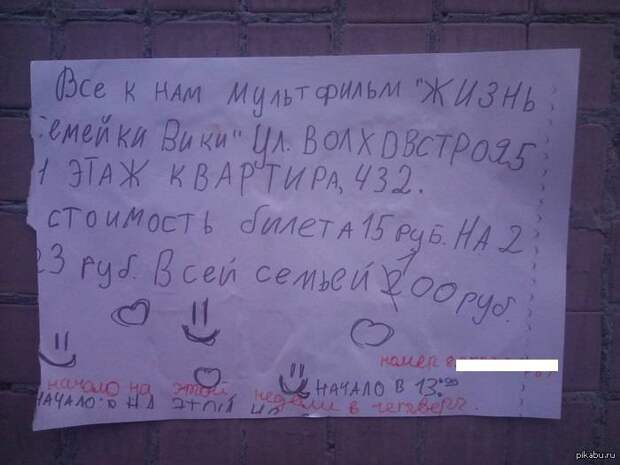 Все к нам мультфильм "жизнь
семейки Вики" ул. ВОЛХОВСТРО25
1 ЭТАЖ КВАРТИРА, 432.
стоимость билета 15 руб. НА 2
23 руб. Всей семьей 100 руб.
номер 8
начало на этой недели в четверг.
НАЧАЛО В 13.00
НАЧАЛО: НА ЭТОЙ
pikabu.ru